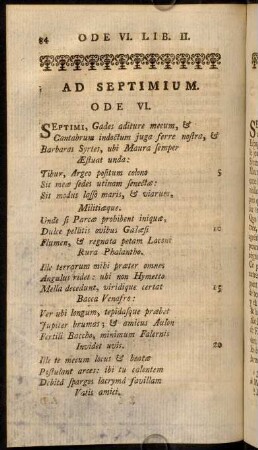 84 ODE VI. LIB. II.
AD SEPTIMIUM.
ODE VI.
SEPTIMI, Gades aditure mecum, &
Cantabrum indoctum juga ferre nostra, &
Barbaras Syrtes, ubi Maura semper
Æstuat unda:
Tibur, Argeo positum colono 5
Sit meæ sedes utinam senectæ:
Sit modus lasso maris, & viarum,
Militiæque.
Unde si Parcæ prohibent iniquæ,
Dulce pellitis ovibus Galæsi 10
Flumen, & regnata petam Laconi
Rura Phalantho.
Ille terrarum mihi præter omnes
Angulus ridet: ubi non Hymetto
Mella decedunt, viridique certat 15
Bacca Venafro:
Ver ubi longum, tepidasque præbet
Jupiter brumas; & amicus Aulon
Fertili Baccho, minimum Falernis
Invidet uvis. 20
Ille te mecum locus & beatæ
Postulant arces: ibi tu calentem
Debitâ sparges lacrymâ favillam
Vatis amici.